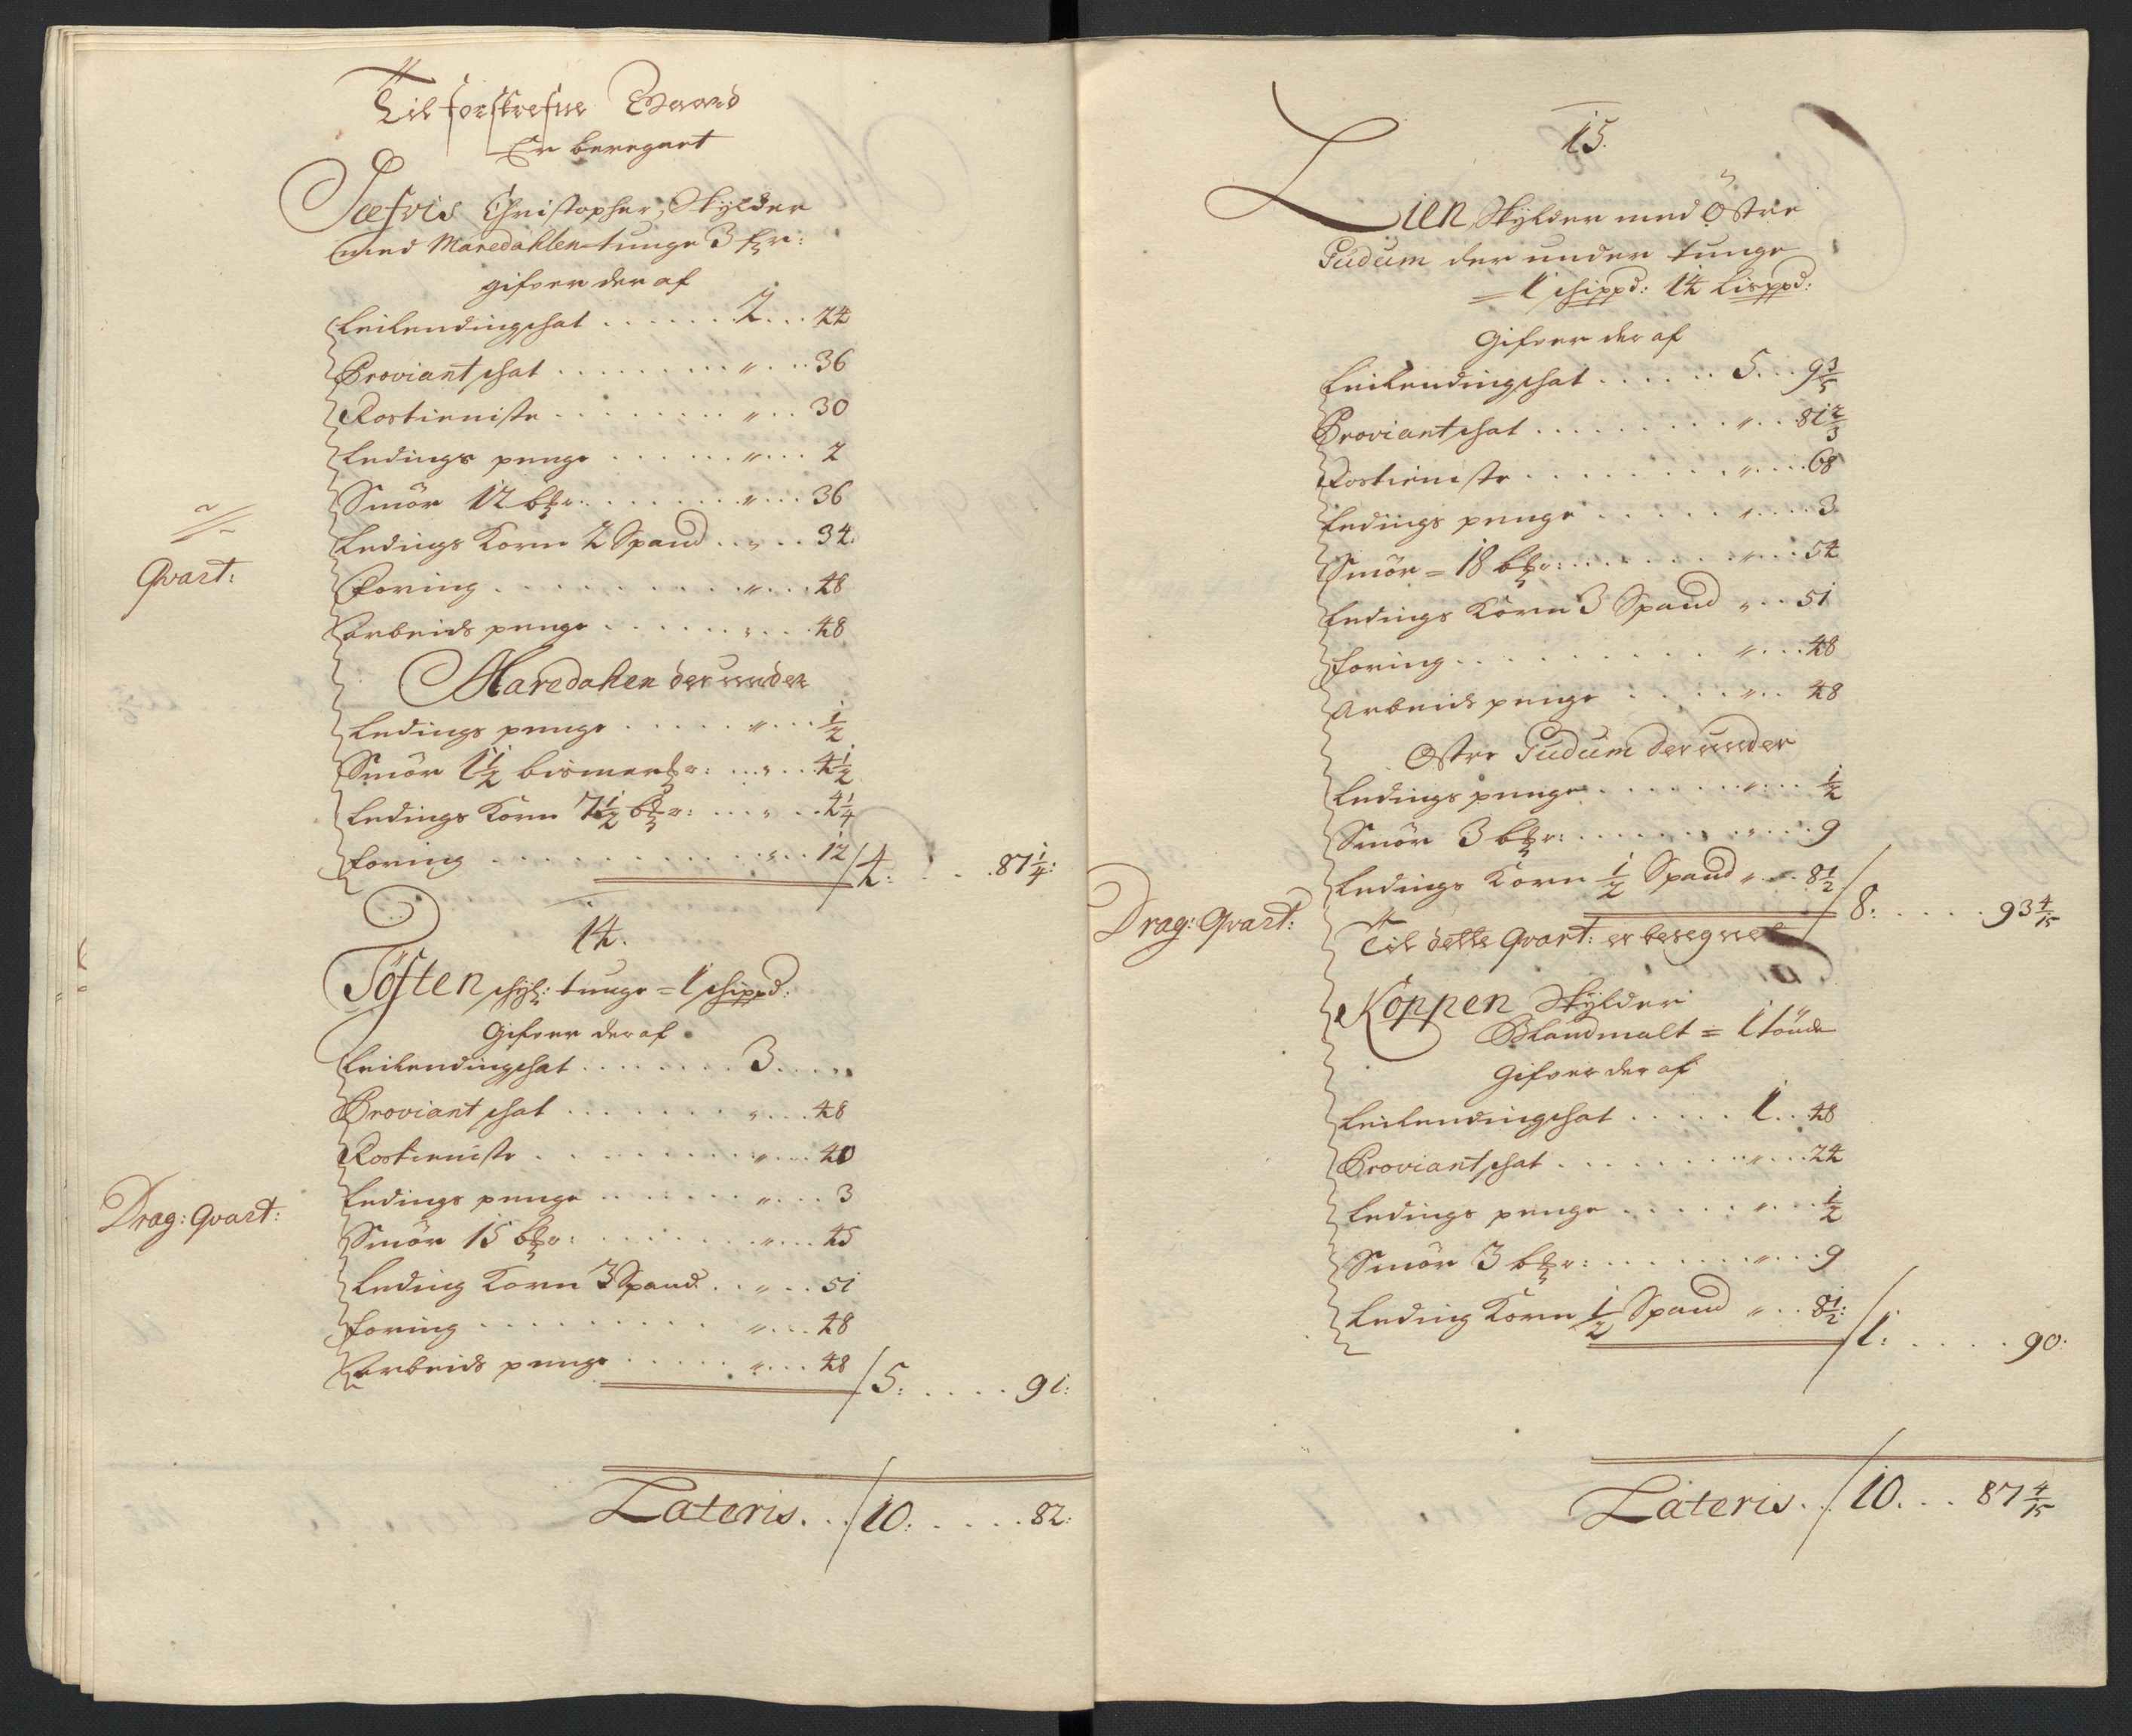 Til forskrefne Gaard
Er beregnet
Sæfvis Christopher, Skylder
med Maredahlen tunge 3 hr:
gifver der af
Leilendingschat . . . . . . 2 . . . 24
Proviant schat . . . . . . . . . „ . . . 36
Rostieniste . . . . . . . . „ . . . 30
Ledings penge . . . . . . „ . . . 2
Smör 12 b℔r: . . . . . . . „ . . . 36
Ledings Korn 2 Spand . . „ . . 34.
Foring . . . . . . . . . „ . . . 48
Arbeids penge . . . . . . „ . . . 48
Qvart:
Maredalen der under
Ledings penge . . . . . „ . . . ½
Smör 1½ bismer℔r: . . . „ . . . 4½
Ledings Korn 7½ b℔r: . . . „ . . . 4¼
Foring . . . . . . . . . . . „ . . . 12 / 4: . . . 87¼:
14.
Töften schyl: tunge = 1 schippd:
Gifver der af
Leilendingschat . . . . . . . 3 . . . „
Proviant schat . . . . . . . „ . . . 48
Rostieniste . . . . . . . . „ . . . 40
Ledings penge . . . . . . „ . . . 3
Drag: Qvart:
Smör 15 b℔r: . . . . . . „ . . . 45
Leding Korn 3 Spand . . „ . . 51
Foring . . . . . . . . . „ . . . 48
Arbeids penge . . . . . „ . . . 48 / 5: . . . . 91:
Lateris . . / 10: . . . . . 82:
15.
Lien Skylder med Östre
Gudum der under tunge
= 1 schippd: 14 Lispd:
Gifver der af
Leilendingschat . . . . . . 5 . . . 9 3/5
Proviant schat . . . . . . . . „ . . 81 2/3
Rostieniste . . . . . . . . „ . . . 68
Ledings penge . . . . . „ . . . 3
Smör = 18 b℔r: . . . . . . . „ . . . 54
Ledings Korn 3 Spand „ . . 51
Foring . . . . . . . . . „ . . . 48
Arbeids penge . . . . „ . . 48
Östre Gudum der under
Ledings penge . . . . . . . „ . . . ½
Smör 3 b℔r: . . . . . . „ . . . 9
Ledings Korn ½ Spand „ . . 8½ / 8: . . . . . 93 4/15
Drag: Qvart:
Til dette Qvart: er beregnet
Koppen Skylder
Blandmalt = 1 tönde
Gifver der af
Leilendingschat . . . . . 1 . . 48
Proviant schat . . . . . . . „ . . . 24
Ledings penge . . . . . „ . . . ½
Smör 3 b℔r: . . . . . . „ . . . 9
Leding Korn ½ Spand „ . . 8½: / 1: . . . . . 90:
Lateris . . / 10 . . . 87 4/15